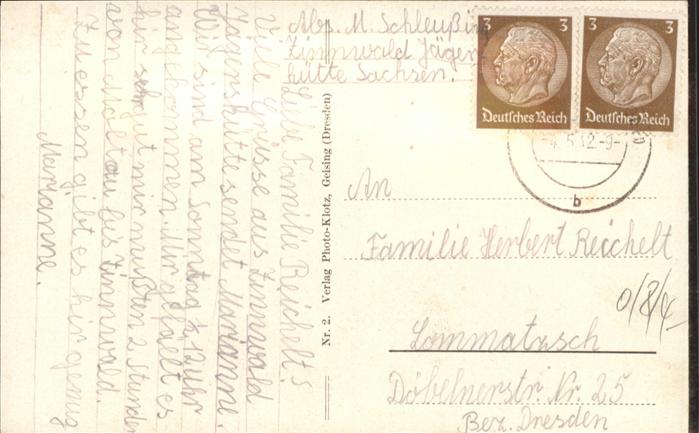 Abs. M. Schleußing
Zinnwald Jäger-
hütte Sachsen.
3 3
3 3
Deutsches Reich
Deutsches Reich
-4.5.42.-9-
b
Liebe Familie Reichelt's
Viele Grüsse aus Zinnwald
Jägershütte sendet Marianne.
Wir sind am Sonntag ½ 12 Uhr
angekommen. Mir gefällt es
hir sehr gut mir mußten 2 Stunden
von bis Zinnwald.
Zu essen gibt es hir genug
Marianne.
Nr. 2. Verlag Photo-Klotz, Geising (Dresden)
An
Familie Herbert Reichelt
Lommatzsch
Döbelnerstr. Nr. 25
Bez. Dresden
0/8/4-